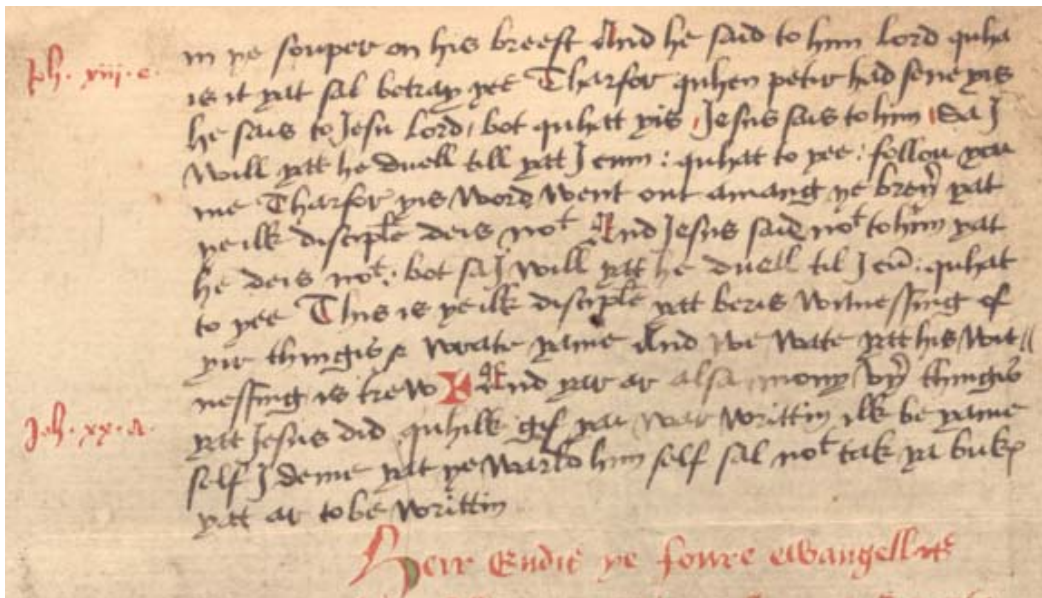 in ye souper on his breest And he said to him lord quha
Joh. xiii. c.
is it yat sal betray yee Tharfor quhen petir had sene yis
he sais to Jesu lord / bot quhatt yis / Jesus sais to him / Sa J
will yatt he duell till yatt J cum : quhat to yee : follou you
me Tharfor yis word went out amang ye breyͬ yat
ye ilk disciple deis noᵗ And Jesus said noᵗ to him yat
he deis noᵗ : bot sa J will yatt he duell til J cū : quhat
to yee This is ye ilk disciple yatt beris witnessing of
yir thingis & wrate yame And we wate yatt his wit //
nessing is trew And yar ar alsa mony vyͬ thingis
Joh. xx. a.
yatt Jesus did quhilk gif yai war writtin ilk be yame
self J deme yat ye warld him self sal noᵗ tak ya bukis
yatt ar to be writtin
Heir Endis ye foure ewangellistis